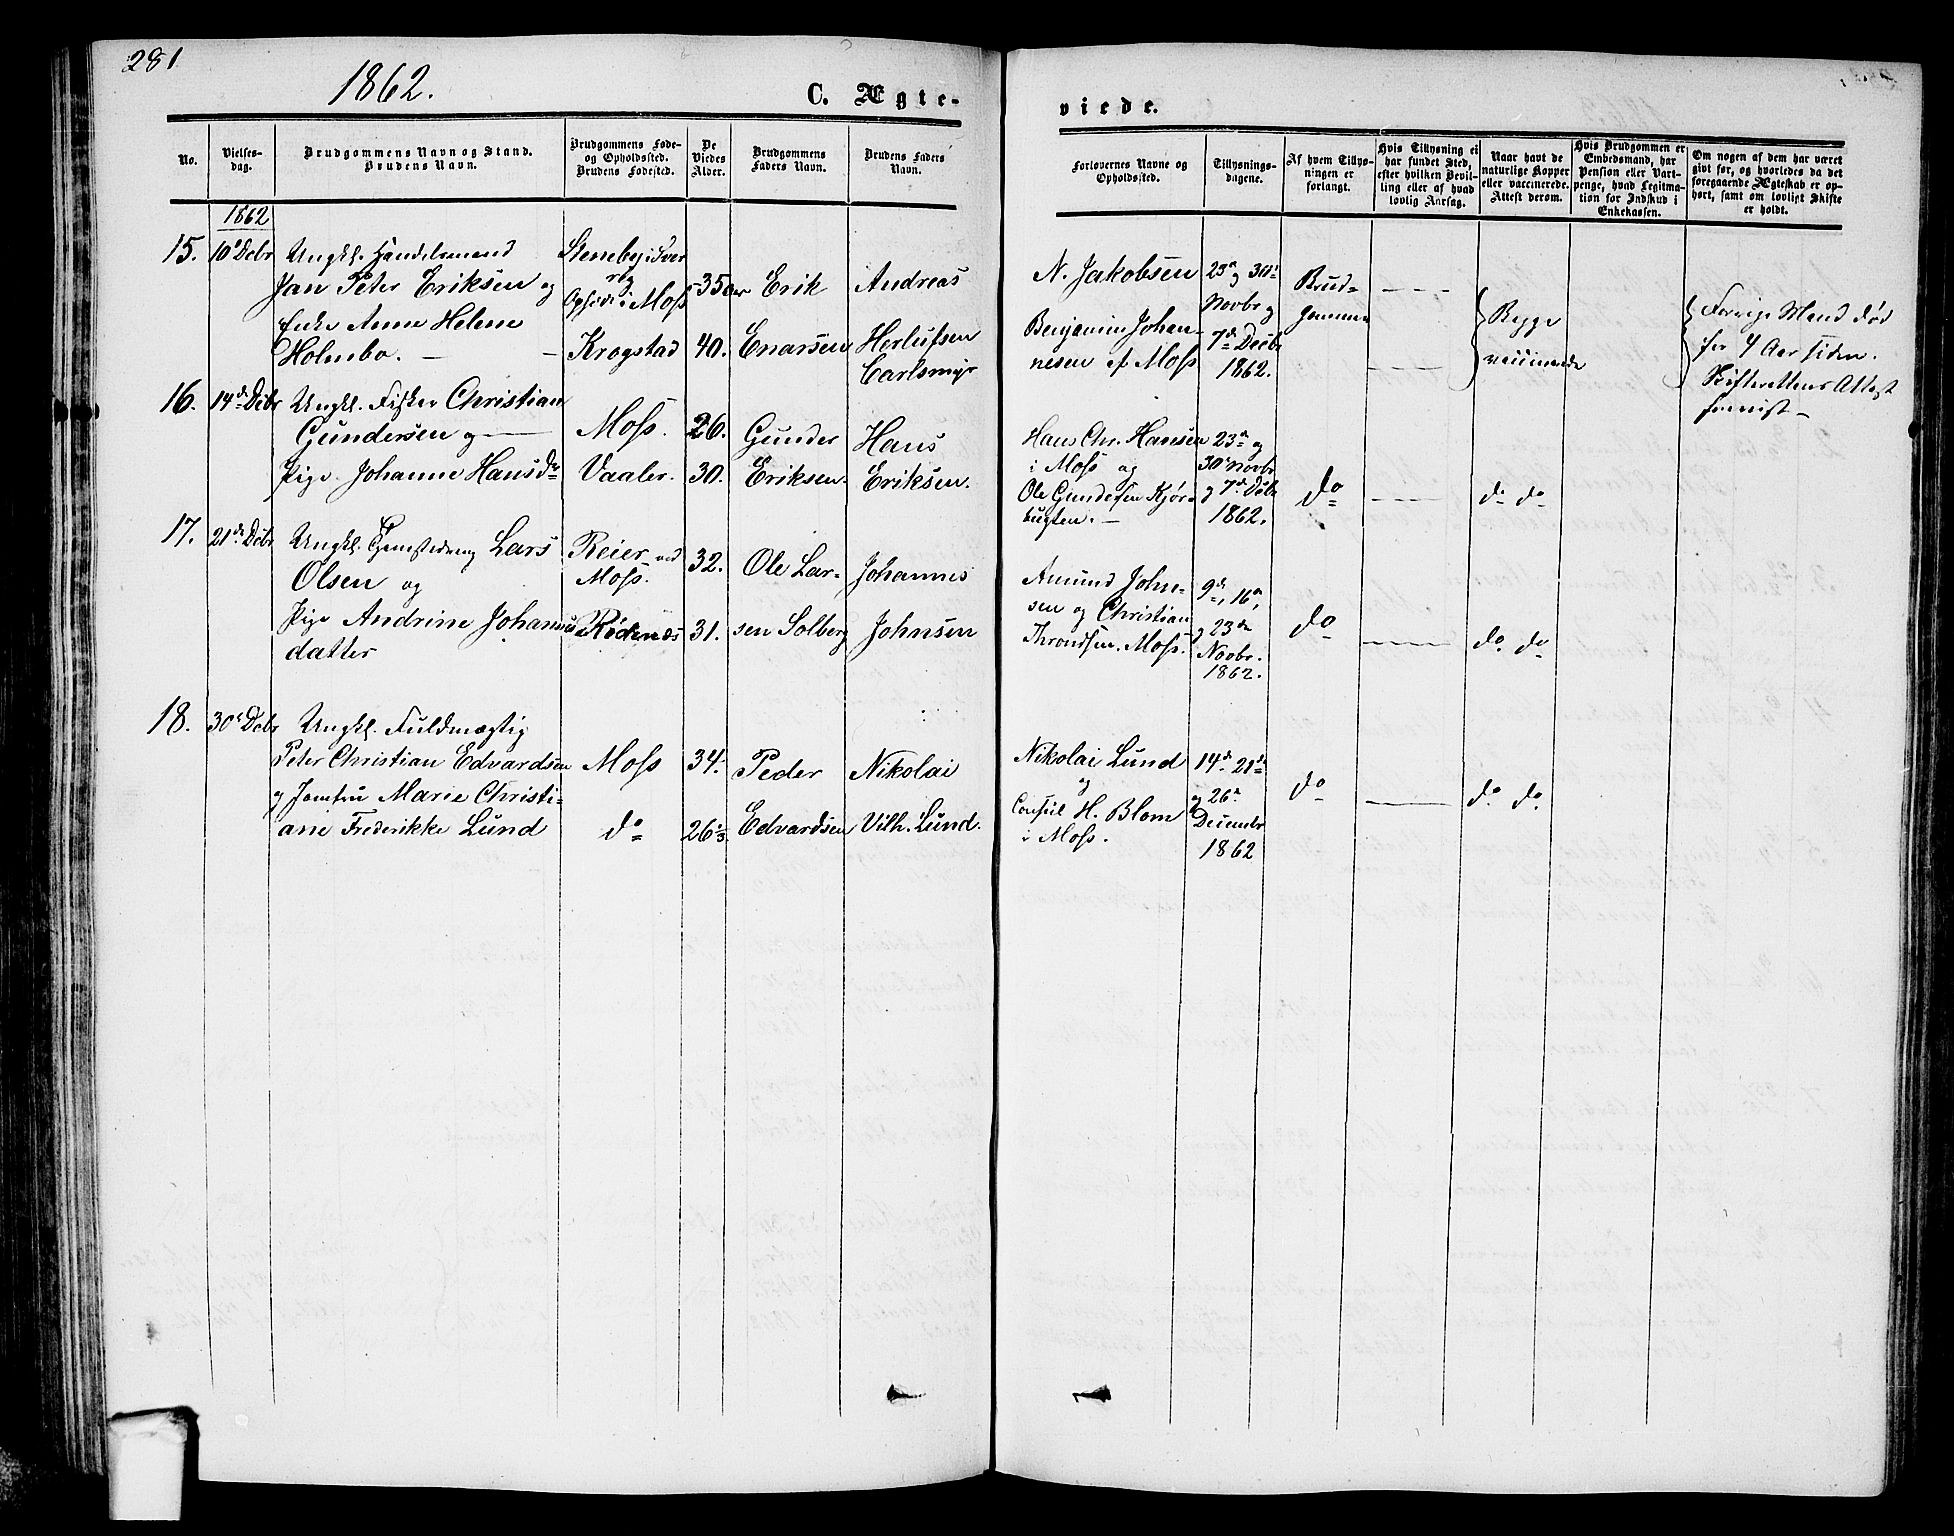 281
1862.
C. Ægte-
viede.
No.
Vielses-
dag.
Brudgommens Navn og Stand.
Brudens Navn.
Brudgommens Føde-
og Opholdssted.
Brudens Fødested.
De
Viedes
Alder.
Brudgommens
Faders Navn.
Brudens Faders
Navn.
Forlovernes Navne og
Opholdssted.
Tillysnings-
dagene.
Af hvem Tillys-
ningen er
forlangt.
Hvis Tillysning ei
har fundet Sted,
efter hvilken Bevil-
ling eller af hvad
lovlig Aarsag.
Naar havt de
naturlige Kopper
eller vaccinerede.
Attest derom.
Hvis Brudgommen er
Embedsmand, har
Pension eller Vart-
penge, hvad Legitima-
tion for Indskud i
Enkekassen.
Om nogen af dem har været
gift før, og hvorledes da det
foregaaende Ægteskab er op-
hørt, samt om lovligt Skifte
er holdt.
1862
15. 10de Debr
Ungkl. Handelsmand
Jan Peter Eriksen og
Enke Anne Helene
Holmbo. —
Steneby i Sver
rig
Opholder i Moss
Krogstad
35 Aar
40.
Erik
Enarsen
Andreas
Herlufsen
Carlsmyr
N. Jakobsen
Benjamin Johan-
nesen af Moss
23de og 30te
Novbr og
7de Decbr
1862.
Brud-
gommen
Begge
vaccinerede
Forrige Mand død
for 4 Aar siden.
Skifterettens Attest
forevist —
16. 14de Debr
Ungkl. Fisker Christian
Gundersen og
Pige Johanne Hansdr
Moss.
Vaaler.
26.
30.
Gunder
Eriksen.
Hans
Eriksen.
Hans Chr. Hansen
i Moss og
Ole Gundersen Kjør-
bugten. —
23de og
30te Novbr
og 7de Debr
1862.
do
do do
17. 21de Debr
Ungkl. Lars
Olsen og
Pige Andrine Johannes
datter
Reier ved
Moss.
Rødenæs
32.
31.
Ole Lar-
sen Solberg
Johannes
Johnsen
Amund John-
sen og Christian
Throndsen. Moss.
9de, 16de,
og 23de
Novbr.
1862.
do
do do
18. 30te Debr
Ungkl. Fuldmægtig
Peter Christian Edvardsen
og Jomfru Marie Christi-
ane Frederikke Lund
Moss
do
34.
26 1/3.
Peder
Edvardsen
Nikolai
Vilh. Lund.
Nikolai Lund
og
Consul H. Blom
i Moss.
14de 21de
og 26de
December
1862
do
do do